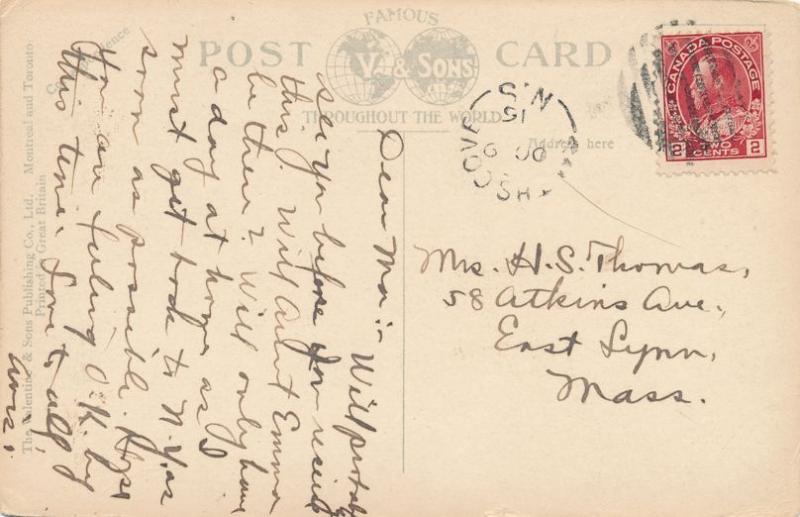 FAMOUS
POST CARD
V. & SONS
THROUGHOUT THE WORLD
Correspondence
Address here
The Valentine & Sons Publishing Co., Ltd. Montreal and Toronto
Printed in Great Britain
CANADA POSTAGE
2 TWO CENTS 2
N.S.
15
OC 9
Dear Ma :- Will probably
see you before you receive
this. Will Aunt Emma
be there? Will only have
a day at home as I
must get back to N.Y. as
soon as possible. Hope
you are feeling O.K. by
this time. Love to all,
Mrs. H. S. Thomas,
58 Atkins Ave.,
East Lynn,
Mass.